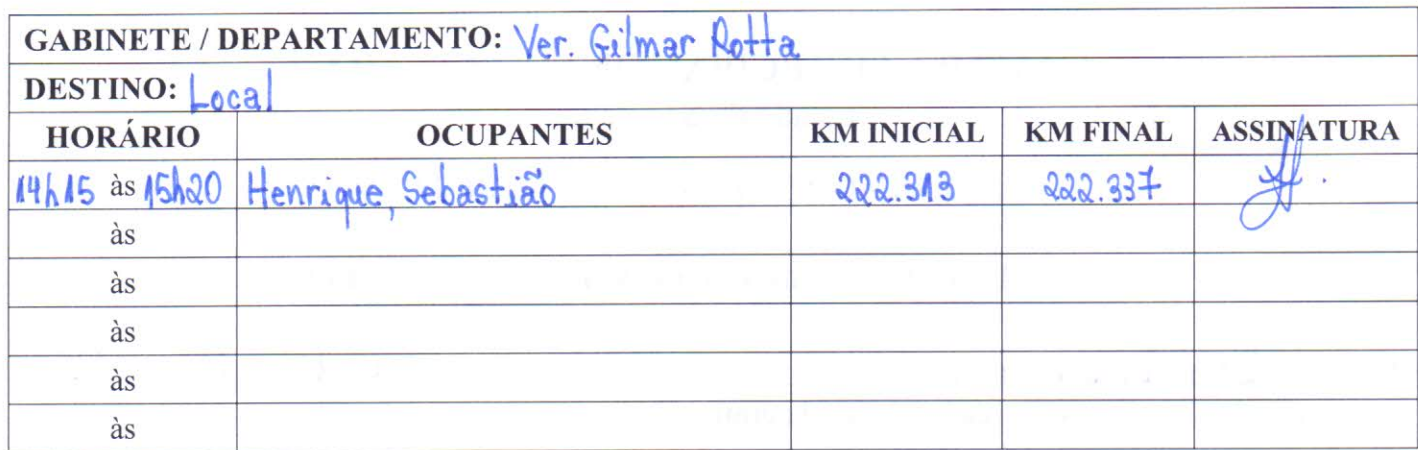 GABINETE / DEPARTAMENTO: Ver. Gilmar Rotta
DESTINO: Local
HORÁRIO OCUPANTES KM INICIAL KM FINAL ASSINATURA
14h15 às 15h20 Henrique, Sebastião 222.313 222.337
às
às
às
às
às